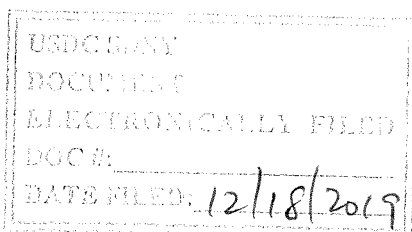 USDC SDNY
DOCUMENT
ELECTRONICALLY FILED
DOC #:
DATE FILED: 12/18/2019